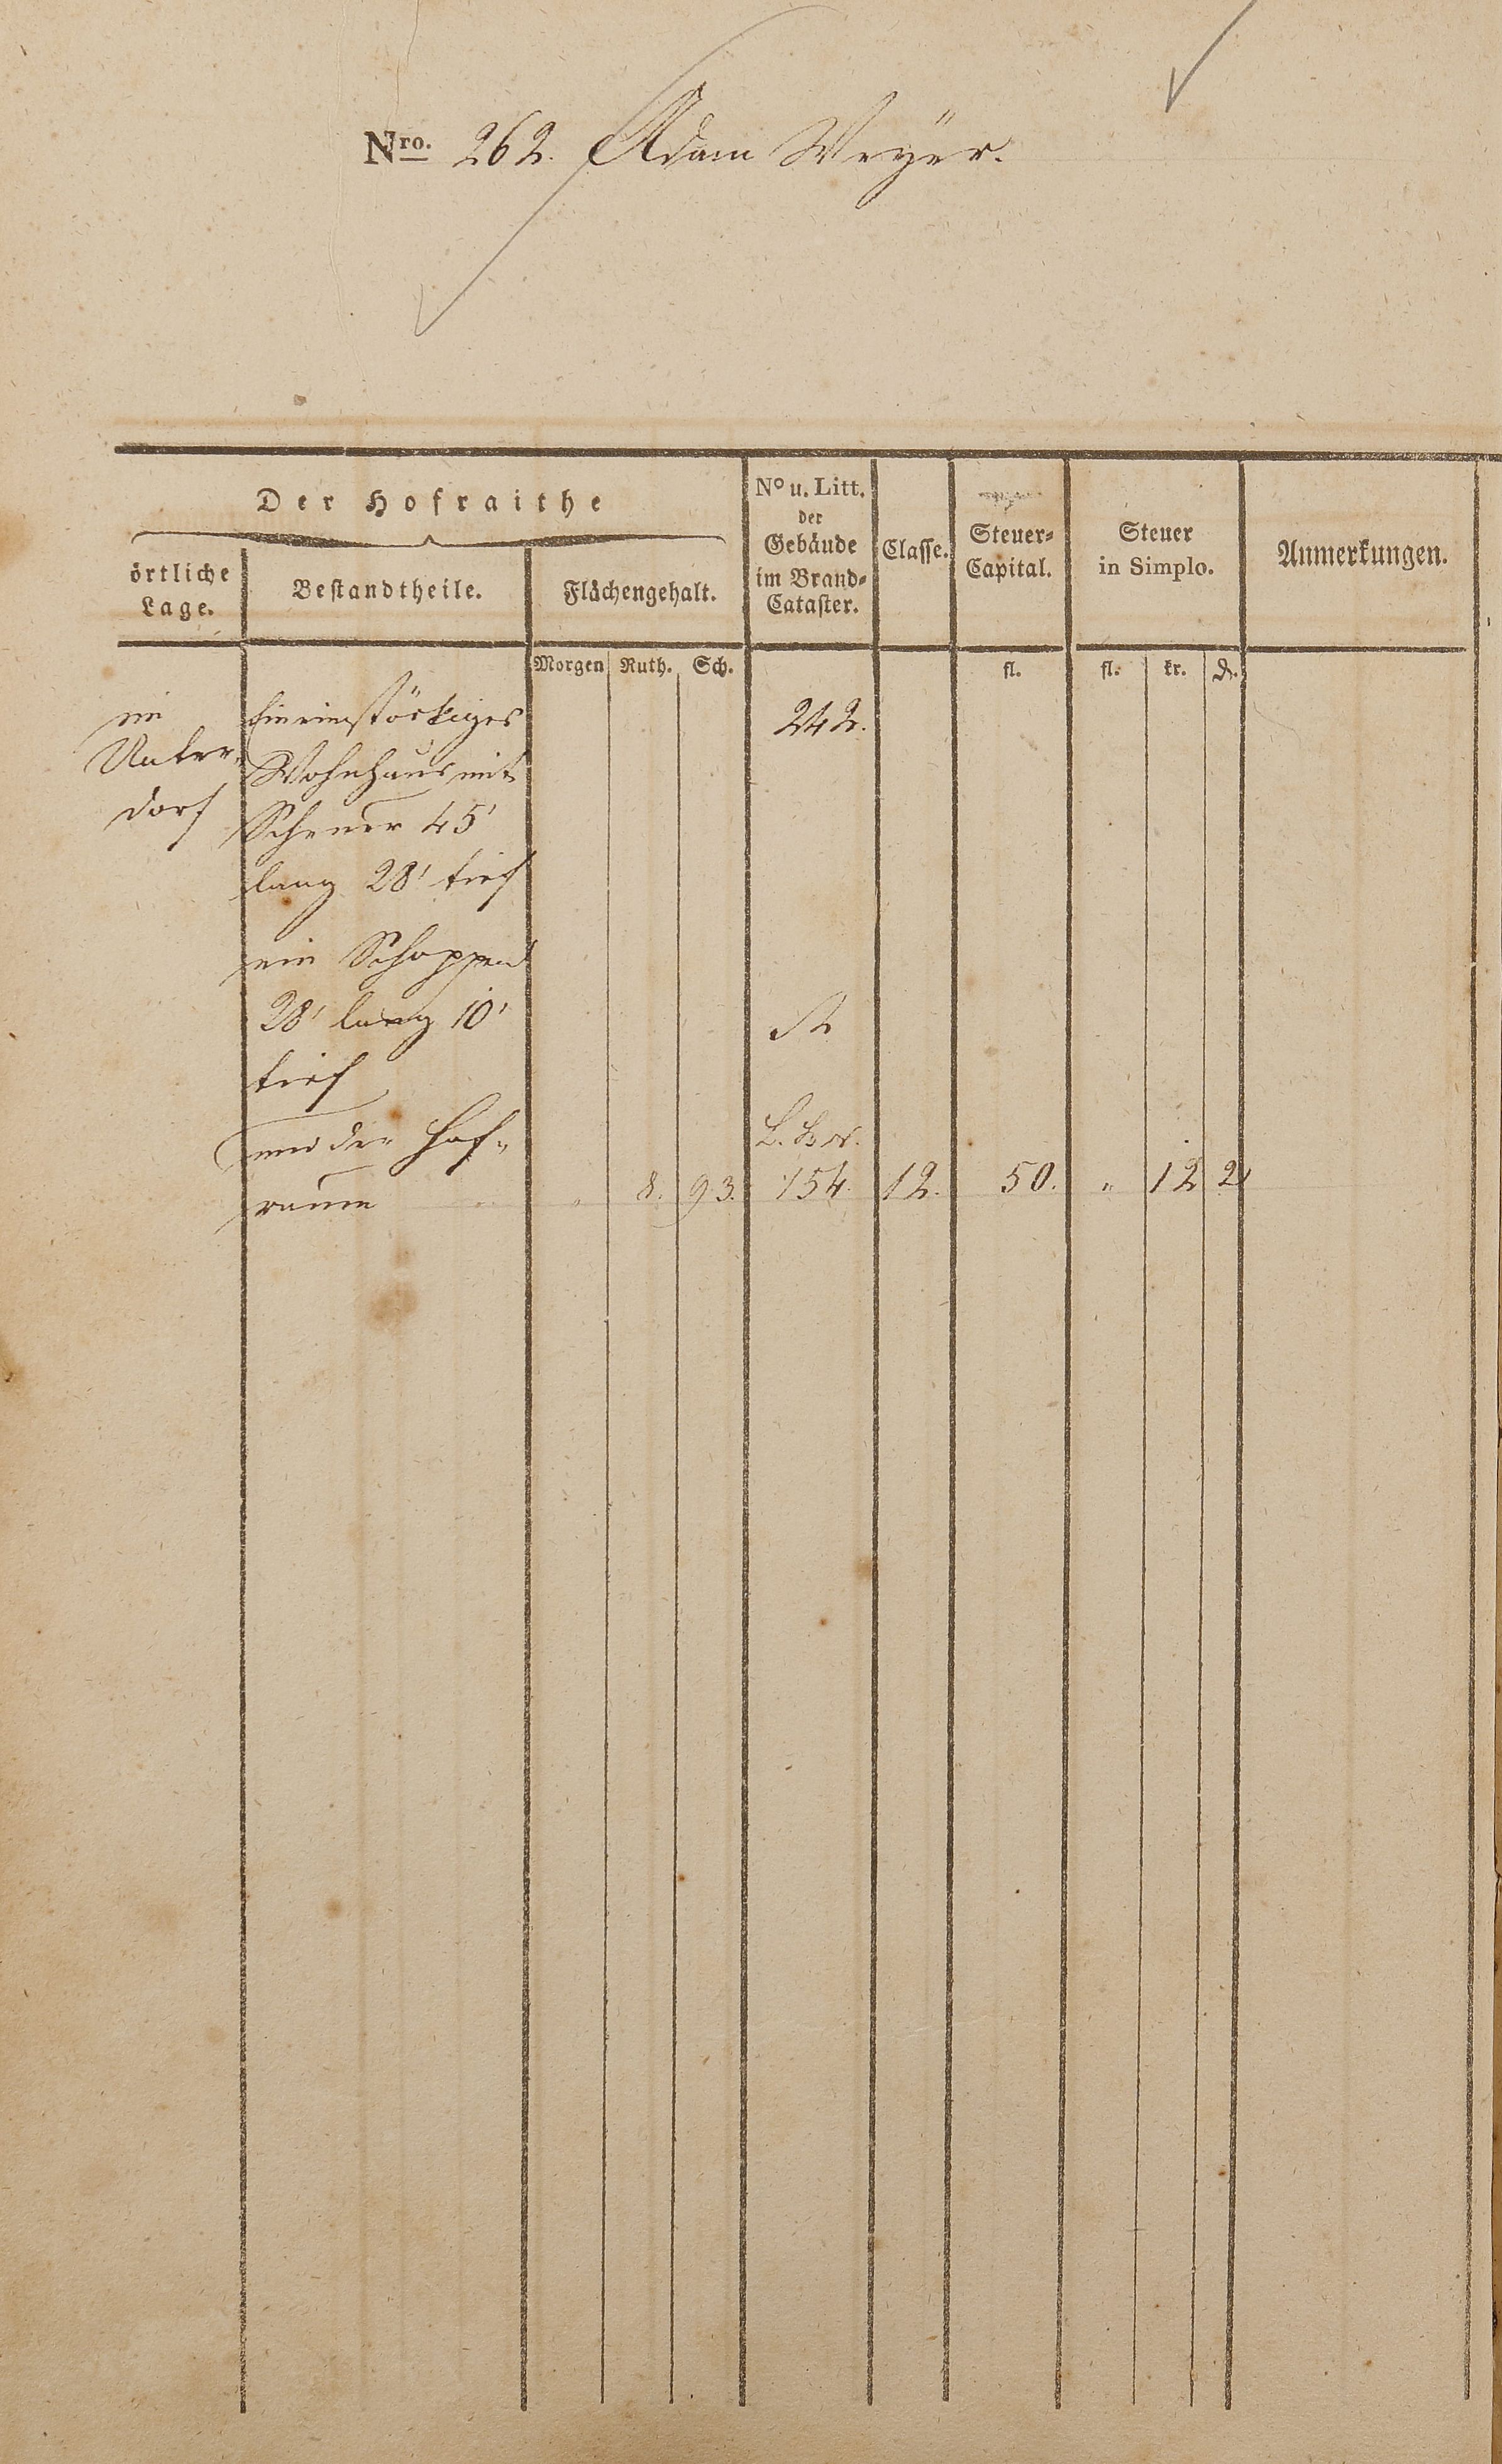 Nro. 262. Adam Weyer.
Der Hofraithe
örtliche Lage.
Bestandtheile.
Flächengehalt.
No u. Litt. der Gebäude im Brand-Cataster.
Classe.
Steuer-Capital.
Steuer in Simplo.
Anmerkungen.
Morgen Ruth. Sch. fl. fl. kr. d.
im Ein einstöckiges 242.
Unter- Wohnhaus mit
dorf Scheuer 45'
lang 28' tief
ein Schoppen
28' lang 10'
tief
und der Hof-
raum " 8. 93. 154. 12. 50. " 12 2